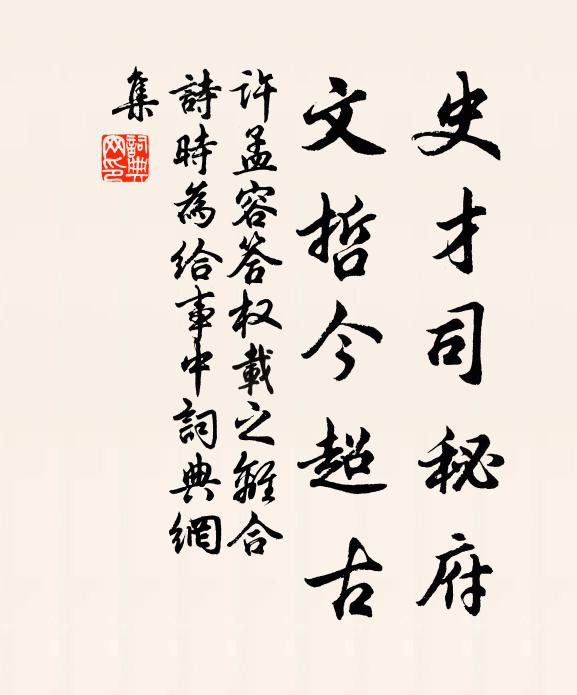 史才司秘府
文哲今超古
許孟容答权載之離合
詩時為給事中詞典網
集
詞典网印